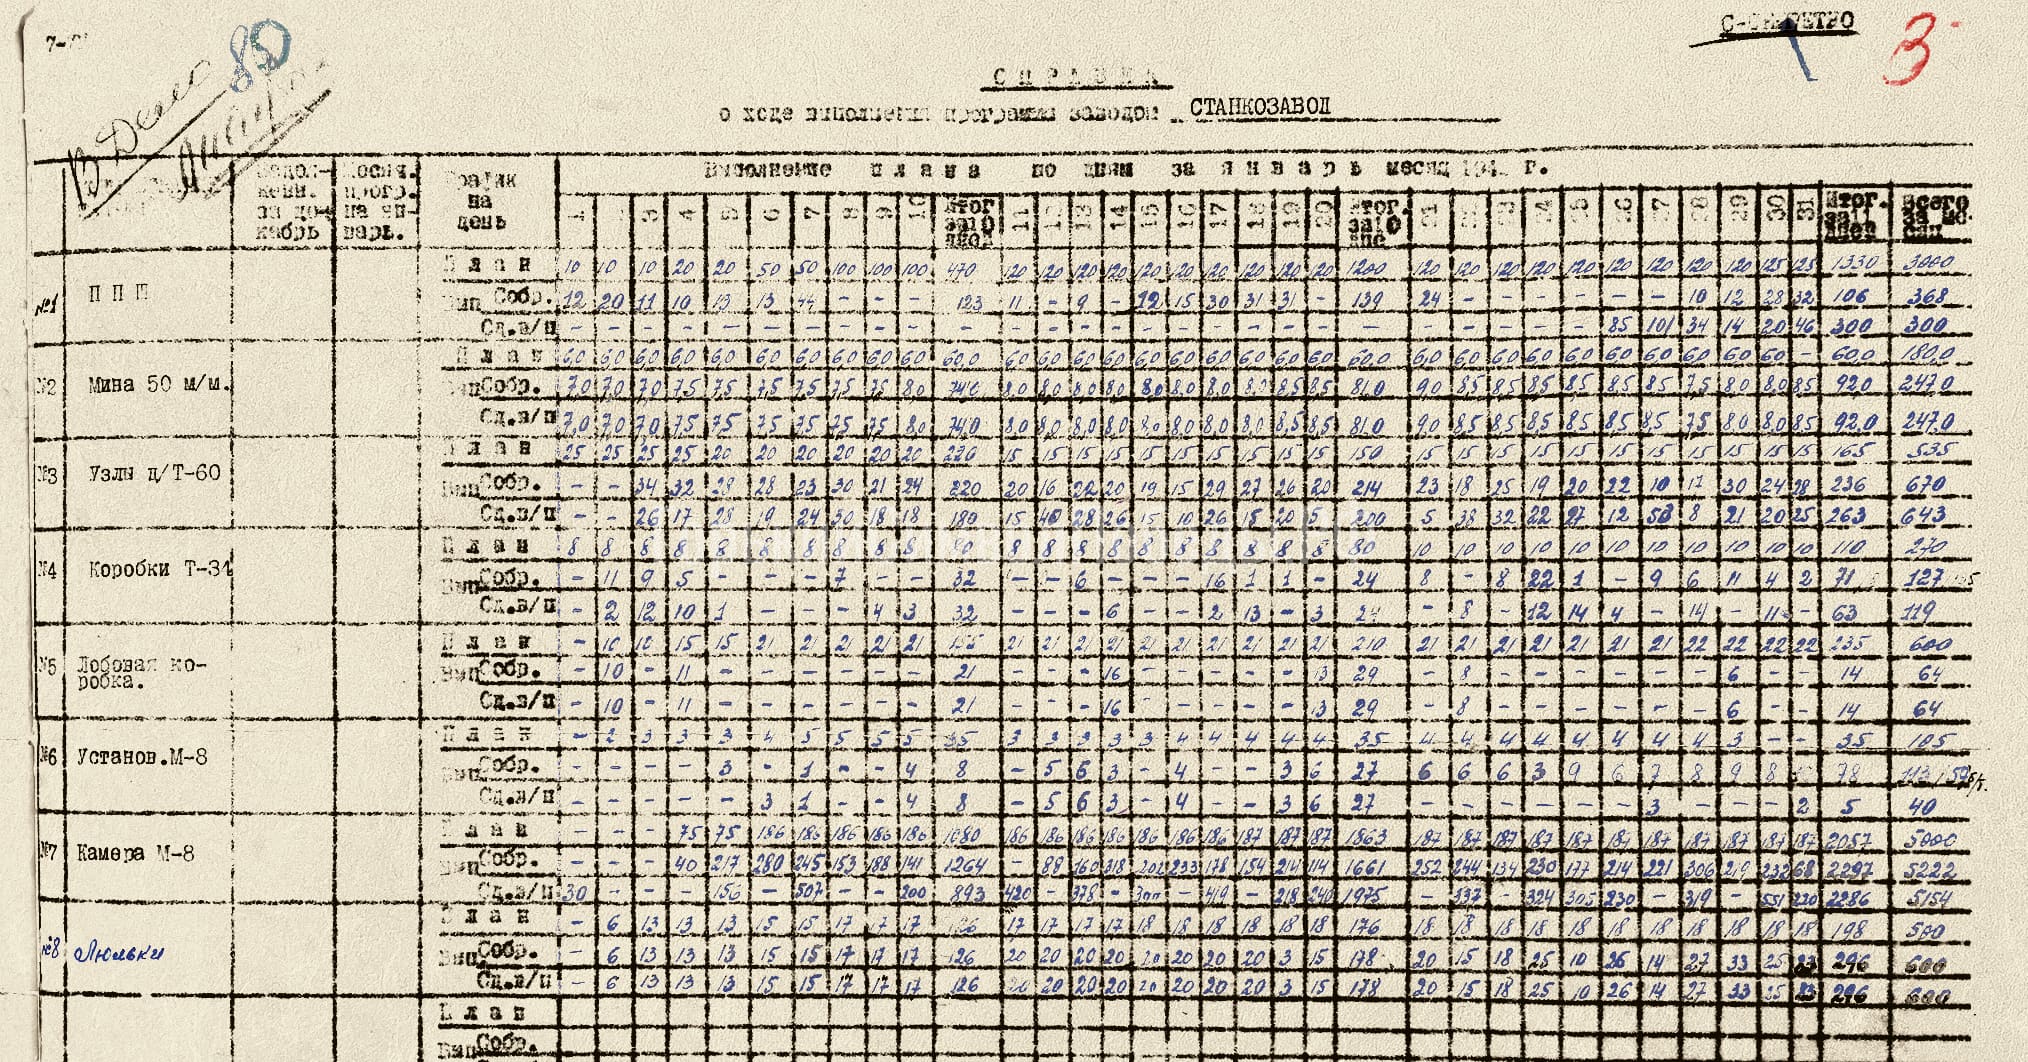 80
3
С П Р А В К А
о ходе выполнения программы заводом СТАНКОЗАВОД
Выполнение плана по дням за январь месяц 194 г.
График на день
1 2 3 4 5 6 7 8 9 10 Итог за 10 дней 11 12 13 14 15 16 17 18 19 20 Итог. за 10 дне 21 22 23 24 25 26 27 28 29 30 31 Итог. за 11 дней Всего за ме- сяц
№1 ППШ
План 10 10 10 20 20 50 50 100 100 100 470 120 120 120 120 120 120 120 120 120 120 1200 120 120 120 120 120 120 120 120 120 125 125 1330 3000
Вып Собр. 12 20 11 10 13 13 44 - - - 123 11 - 9 - 12 15 30 31 31 - 139 24 - - - - - - 10 12 28 32 106 368
Сд.в/п - - - - - - - - - - - - - - - - - - - - - - - - - - - 85 101 34 14 20 46 300 300
№2 Мина 50 м/м.
План 6,0 6,0 6,0 6,0 6,0 6,0 6,0 6,0 6,0 6,0 60,0 6,0 6,0 6,0 6,0 6,0 6,0 6,0 6,0 6,0 6,0 60,0 6,0 6,0 6,0 6,0 6,0 6,0 6,0 6,0 6,0 6,0 - 60,0 180,0
Вып Собр. 7,0 7,0 7,0 7,5 7,5 7,5 7,5 7,5 7,5 8,0 74,0 8,0 8,0 8,0 8,0 8,0 8,0 8,0 8,0 8,5 8,5 81,0 9,0 8,5 8,5 8,5 8,5 8,5 8,5 7,5 8,0 8,0 8,5 92,0 247,0
Сд.в/п 7,0 7,0 7,0 7,5 7,5 7,5 7,5 7,5 7,5 8,0 74,0 8,0 8,0 8,0 8,0 8,0 8,0 8,0 8,0 8,5 8,5 81,0 9,0 8,5 8,5 8,5 8,5 8,5 8,5 7,5 8,0 8,0 8,5 92,0 247,0
№3 Узлы д/Т-60
План 25 25 25 25 20 20 20 20 20 20 220 15 15 15 15 15 15 15 15 15 15 150 15 15 15 15 15 15 15 15 15 15 15 165 535
Вып Собр. - - 34 32 28 28 23 30 21 24 220 20 16 22 20 19 15 29 27 26 20 214 23 18 25 19 20 22 10 17 30 24 28 236 670
Сд.в/п - - 26 17 28 19 24 30 18 18 180 15 40 28 26 15 10 26 15 20 5 200 5 38 32 22 27 12 53 8 21 20 25 263 643
№4 Коробки Т-34
План 8 8 8 8 8 8 8 8 8 8 80 8 8 8 8 8 8 8 8 8 8 80 10 10 10 10 10 10 10 10 10 10 10 110 270
Вып Собр. - 11 9 5 - - - 7 - - 32 - - 6 - - - 16 1 1 - 24 8 - 8 22 1 - 9 6 11 4 2 71 127
Сд.в/п - 2 12 10 1 - - - 4 3 32 - - - 6 - - 2 13 - 3 24 - 8 - 12 14 4 - 14 - 11 - 63 119
№5 Лобовая ко-
робка.
План - 10 10 15 15 21 21 21 21 21 155 21 21 21 21 21 21 21 21 21 21 210 21 21 21 21 21 21 21 22 22 22 22 235 600
Вып Собр. - 10 - 11 - - - - - - 21 - - - 16 - - - - - 13 29 - 8 - - - - - - 6 - - 14 64
Сд.в/п - 10 - 11 - - - - - - 21 - - - 16 - - - - - 13 29 - 8 - - - - - - 6 - - 14 64
№6 Установ.М-8
План - 2 3 3 3 4 5 5 5 5 35 3 3 3 3 3 4 4 4 4 4 35 4 4 4 4 4 4 4 4 3 - - 35 105
Вып Собр. - - - - 3 - 1 - - 4 8 - 5 6 3 - 4 - - 3 6 27 6 6 6 3 9 6 7 8 9 8 78 113
Сд.в/п - - - - - 3 1 - - 4 8 - 5 6 3 - 4 - - 3 6 27 - - - - - - 3 - - - 2 5 40
№7 Камера М-8
План - - - 75 75 186 186 186 186 186 1080 186 186 186 186 186 186 186 187 187 187 1863 187 187 187 187 187 187 187 187 187 187 187 2057 5000
Вып Собр. - - - 40 217 280 245 153 188 141 1264 - 88 160 318 202 233 178 154 214 114 1661 252 244 134 230 177 214 221 306 219 232 68 2297 5222
Сд.в/п 30 - - - 156 - 507 - - 200 893 420 - 378 - 300 - 419 - 218 240 1975 - 337 - 324 305 230 - 319 - 551 220 2286 5154
№8 Люльки
План - 6 13 13 13 15 15 17 17 17 126 17 17 17 17 18 18 18 18 18 18 176 18 18 18 18 18 18 18 18 18 18 18 198 500
Вып Собр. - 6 13 13 13 15 15 17 17 17 126 20 20 20 20 20 20 20 20 3 15 178 20 15 18 25 10 26 14 27 33 25 23 296 600
Сд.в/п - 6 13 13 13 15 15 17 17 17 126 20 20 20 20 20 20 20 20 3 15 178 20 15 18 25 10 26 14 27 33 25 23 296 600
План
Вып Собр.